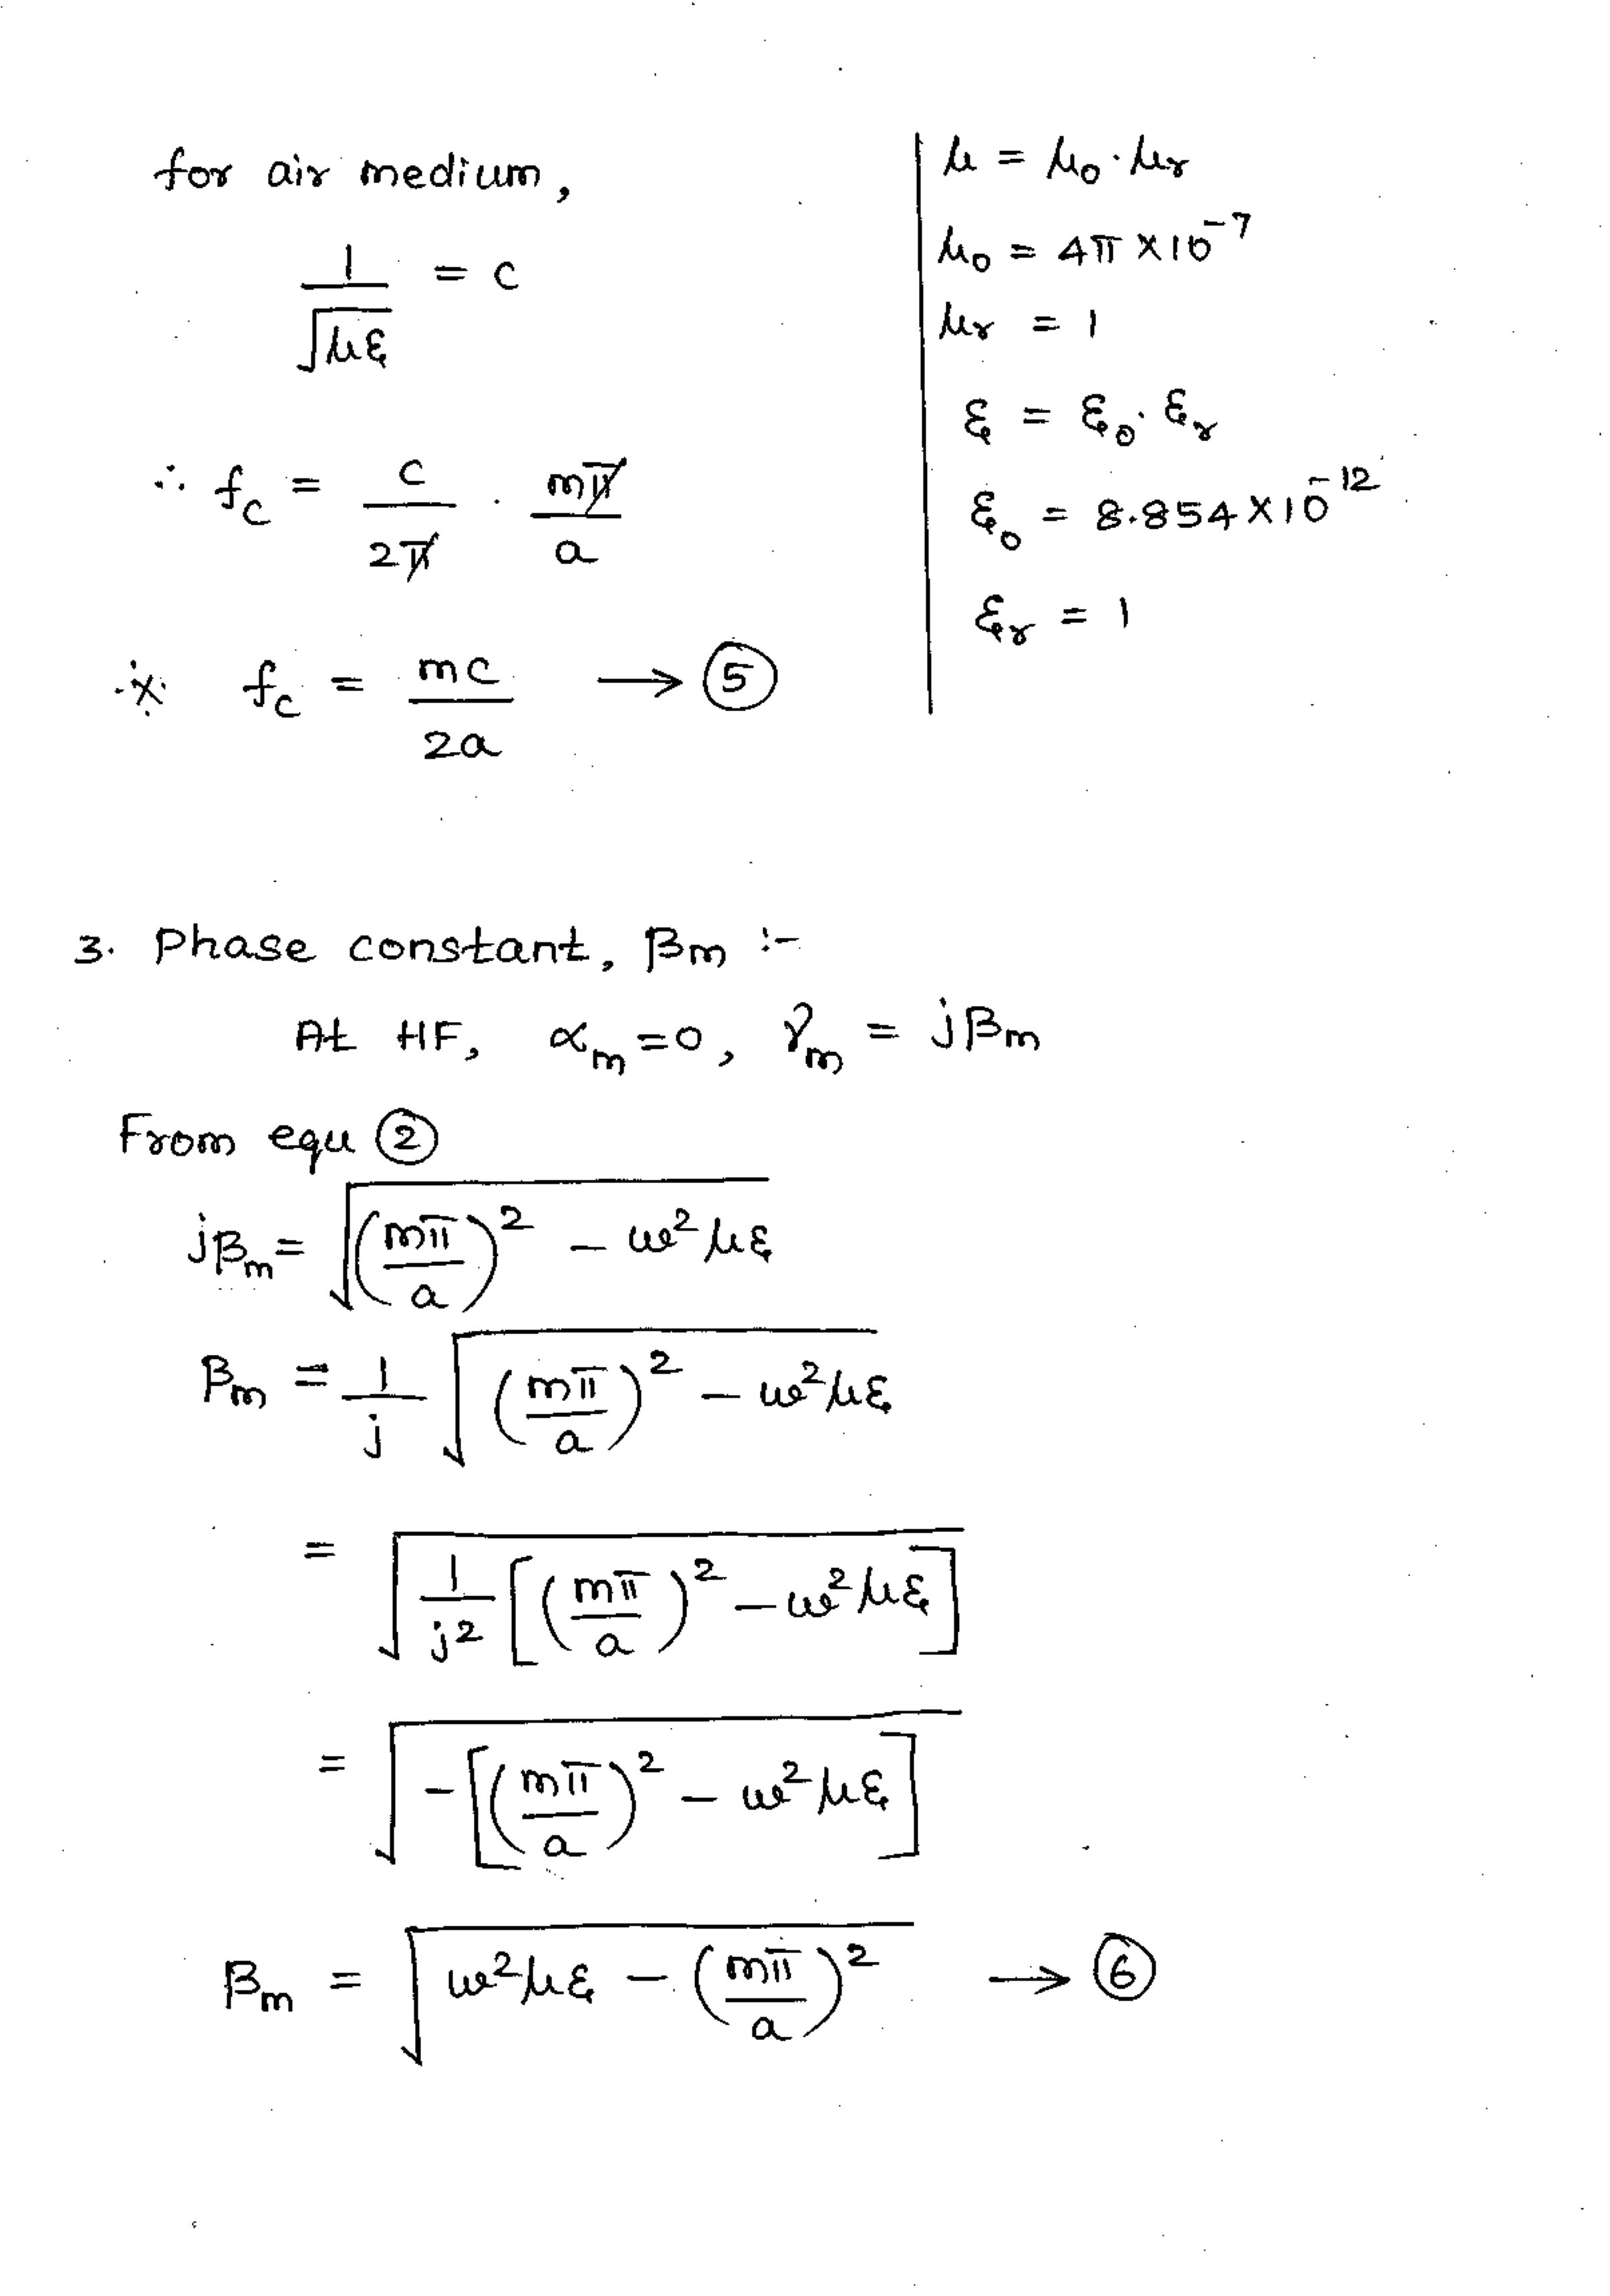 for air medium,
1/√με = c
∴ fc = c/2π · mπ/a
※ fc = mc/2a → ⑤
μ = μ₀ · μr
μ₀ = 4π × 10⁻⁷
μr = 1
ε = ε₀ · εr
ε₀ = 8.854 × 10⁻¹²
εr = 1
3. Phase constant, βm :-
At HF, αm = 0, γm = jβm
From equ ②
jβm = √((mπ/a)² − ω²με)
βm = 1/j √((mπ/a)² − ω²με)
= √(1/j² [(mπ/a)² − ω²με])
= √(−[(mπ/a)² − ω²με])
βm = √(ω²με − (mπ/a)²) → ⑥